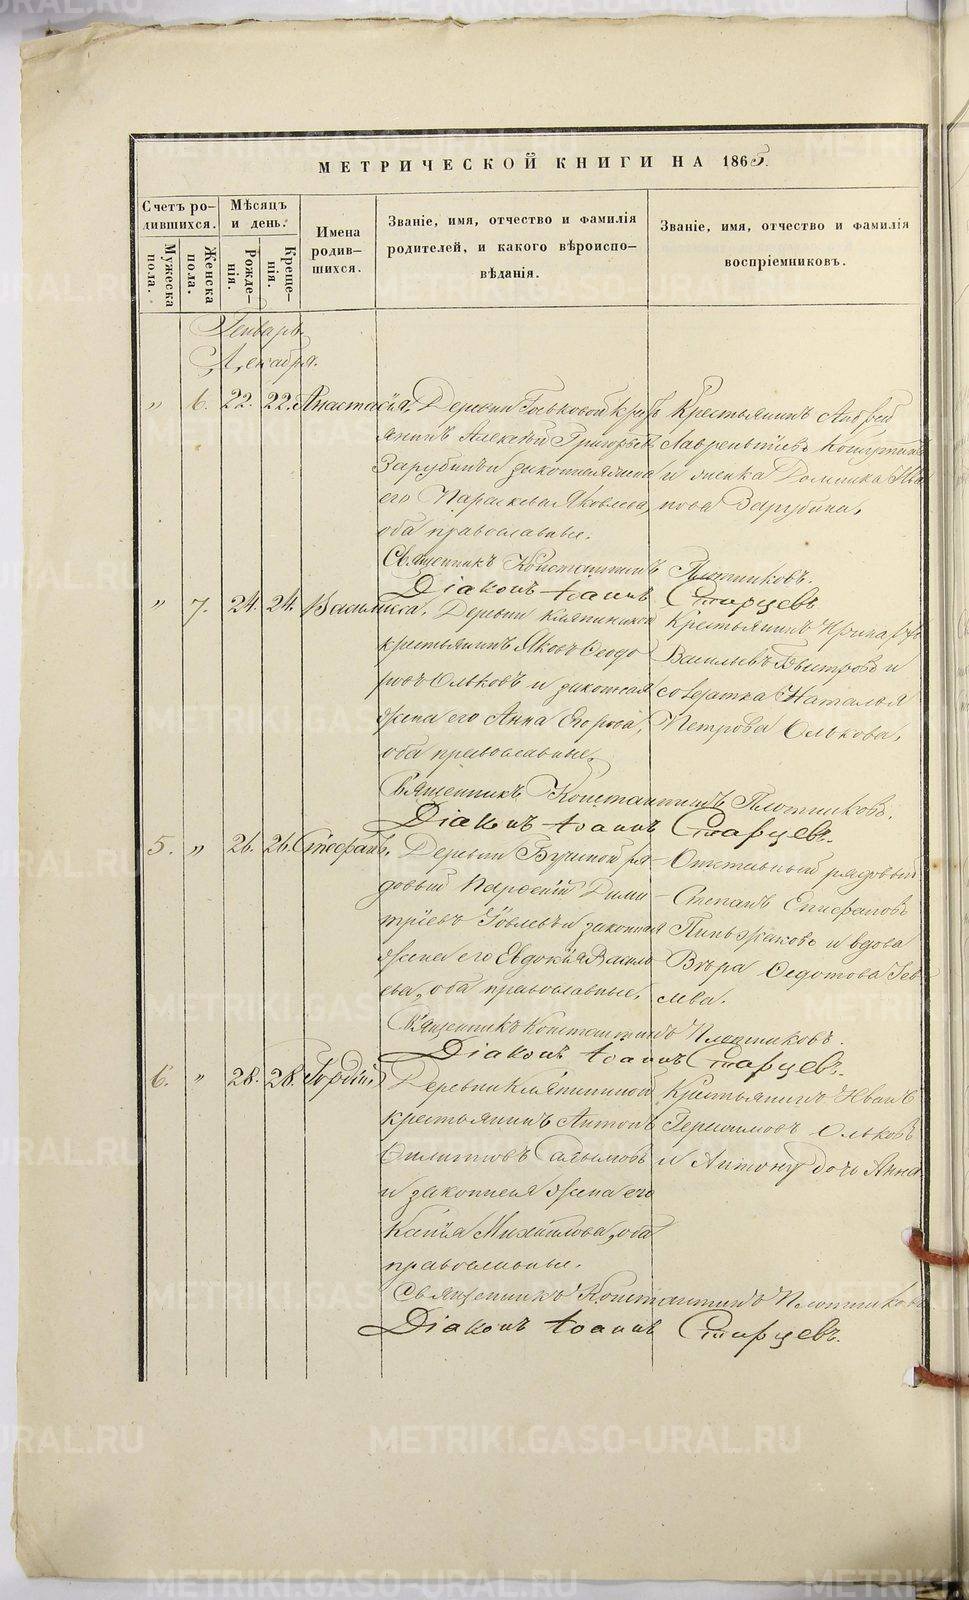 МЕТРИЧЕСКОЙ КНИГИ НА 1865.
Счетъ ро-
дившихся.
Мѣсяцъ
и день.
Имена
родив-
шихся.
Званіе, имя, отчество и фамилія
родителей, и какого вѣроиспо-
вѣданія.
Званіе, имя, отчество и фамилія
воспріемниковъ.
Мужеска
пола.
Женска
пола.
Рожде-
нія.
Креще-
нія.
Генварь.
Декабря.
„ 6. 22. 22. Анастасія. Деревни крес
Крестьянинъ
янинъ Алексѣй Григорьевъ
Лаврентьевъ
Зарубинъ и законная жена
и женка Домника Ива
его Параскева Яковлева,
нова Зарубина,
оба православные.
Священникъ Константинъ Плотниковъ.
Діаконъ Іоаннъ Старцевъ
„ 7. 24. 24. Василисса. Деревни
Крестьянинъ
крестьянинъ Яковъ Ѳеодо
Васильевъ Быстровъ и
ровъ Ольковъ и законная
солдатка Наталья
жена его Анна Егорова,
Петрова Олькова,
оба православные,
Священникъ Константинъ Плотниковъ.
Діаконъ Іоаннъ Старцевъ.
5. „ 26. 26. Стефанъ. Деревни ря
Отставный рядовый
довый Дими
Степанъ Епифановъ
тріевъ и законная
и вдова
жена его Евдокія Василь
Вѣра Ѳедотова
ева, оба православные,
лева.
Священникъ Константинъ Плотниковъ.
Діаконъ Іоаннъ Старцевъ.
6. „ 28. 28. Гордій. Деревни
Крестьянинъ Иванъ
крестьянинъ Антонъ
Герасимовъ Ольковъ
Филипповъ
и дочь Анна
и законная жена его
Ксенія Михайлова, оба
православные.
Священникъ Константинъ Плотниковъ
Діаконъ Іоаннъ Старцевъ.
METRIKI.GASO-URAL.RU